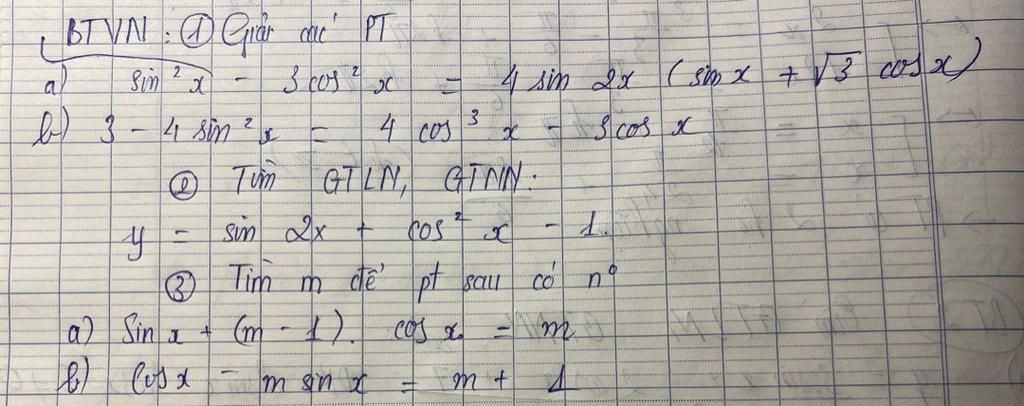 BTVN: ① Giải các PT
a) sin²x - 3cos²x = 4 sin 2x (sin x + √3 cos x)
b) 3 - 4 sin²x = 4 cos³x - 3cos x
② Tìm GTLN, GTNN:
y = sin 2x + cos²x - 1.
③ Tìm m để pt sau có n°
a) Sin x + (m - 1). cos x = m
b) Cos x - m sin x = m + 1